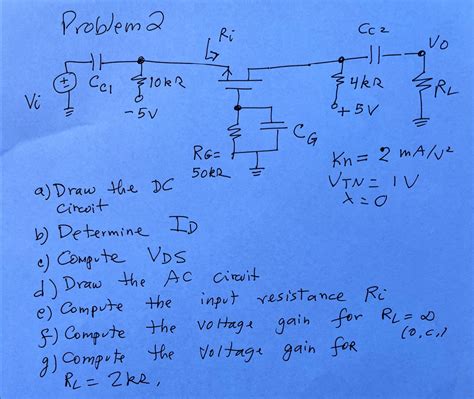 Problem 2
Ri
Cc2
Vo
Vi
Cc1
10kΩ
-5V
4kΩ
+5V
RL
RG=
50kΩ
CG
Kn = 2 mA/V²
VTN = 1V
λ = 0
a) Draw the DC
circuit
b) Determine ID
c) Compute VDS
d) Draw the AC circuit
e) Compute the input resistance Ri
f) Compute the voltage gain for RL = ∞
(o.c.)
g) Compute the voltage gain for
RL = 2kΩ.